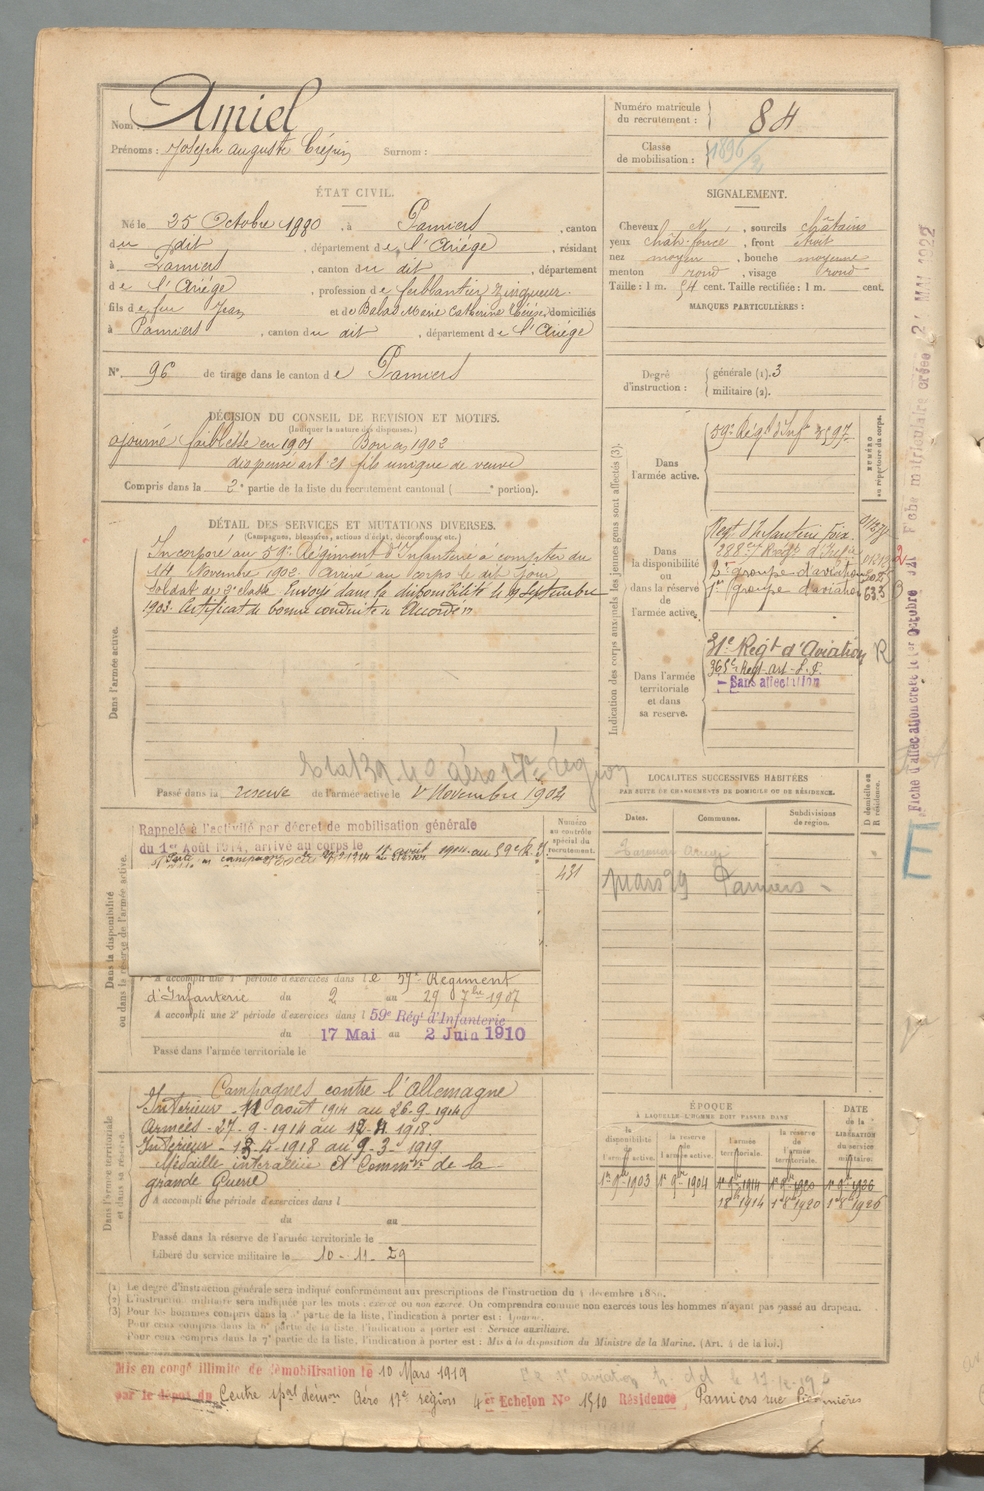 Nom : Amiel
Prénoms : Joseph Auguste Crépin Surnom :
Numéro matricule du recrutement : 84
Classe de mobilisation : 1896
ÉTAT CIVIL.
Né le 25 Octobre 1880, à Pamiers, canton
du dit, département de l'Ariège, résidant
à Pamiers, canton du dit, département
de l'Ariège, profession de ferblantier zingueur.
fils de feu Jean et de Babas Marie Catherine, domiciliés
à Pamiers, canton du dit, département de l'Ariège
N° 96 de tirage dans le canton de Pamiers
SIGNALEMENT.
Cheveux et, sourcils châtains
yeux chât. foncé, front étroit
nez moyen, bouche moyenne
menton rond, visage rond
Taille : 1 m. 54 cent. Taille rectifiée : 1 m. cent.
MARQUES PARTICULIÈRES :
Degré d'instruction : générale (1). 3
militaire (2).
DÉCISION DU CONSEIL DE REVISION ET MOTIFS.
(Indiquer la nature des dispenses.)
ajourné faiblesse en 1901 Bon en 1902
dispensé art. 21 fils unique de veuve
Compris dans la 2e partie de la liste du recrutement cantonal ( e portion).
DÉTAIL DES SERVICES ET MUTATIONS DIVERSES.
(Campagnes, blessures, actions d'éclat, décorations, etc.)
Dans l'armée active.
Incorporé au 59e Régiment d'Infanterie à compter du
14 Novembre 1902. Arrivé au corps le dit jour
soldat de 2e classe Envoyé dans la disponibilité le 19 Septembre
1903. Certificat de bonne conduite Accordé
aéro 17e région
Passé dans la réserve de l'armée active le 1er Novembre 1904
Indication des corps auxquels les jeunes gens sont affectés (3).
NUMÉRO au répertoire du corps.
Dans l'armée active.
59e Rég.t d'Inf.ie 3597
Dans la disponibilité ou dans la réserve de l'armée active.
Régt d'Infanterie Foix
288e Régt d'Infie
2e groupe d'aviation
1er groupe d'aviation 633
Dans l'armée territoriale et dans sa réserve.
31e Régt d'Aviation R
Sans affectation
LOCALITÉS SUCCESSIVES HABITÉES
PAR SUITE DE CHANGEMENTS DE DOMICILE OU DE RÉSIDENCE.
D domicile ou R résidence.
Dates. Communes. Subdivisions de région.
mars 29 Pamiers
Dans la disponibilité ou dans la réserve de l'armée active.
Numéro au contrôle spécial du recrutement.
431
Rappelé à l'activité par décret de mobilisation générale
du 1er Août 1914, arrivé au corps le 11 août 1914 au 59e R.I.
A accompli une 1re période d'exercices dans le 59e Régiment
d'Infanterie du 2 au 29 7bre 1907
A accompli une 2e période d'exercices dans l 59e Régt d'Infanterie
du 17 Mai au 2 Juin 1910
Passé dans l'armée territoriale le
Dans l'armée territoriale et dans sa réserve.
Campagnes contre l'Allemagne
Intérieur - 11 août 1914 au 26-9-1914
Armées - 27-9-1914 au 12-4-1918
Intérieur - 13-4-1918 au 9-3-1919.
Médaille interalliée et Commve de la
grande Guerre
A accompli une période d'exercices dans l
du au
Passé dans la réserve de l'armée territoriale le
Libéré du service militaire le 10-11-29
ÉPOQUE
À LAQUELLE L'HOMME DOIT PASSER DANS
DATE de la LIBÉRATION du service militaire.
la disponibilité de l'armée active. la réserve de l'armée active. l'armée territoriale. la réserve de l'armée territoriale.
1er 9bre 1903 1er 9bre 1904 1er 9bre 1914 1er 9bre 1920 1er 9bre 1926
1 8bre 1914 1er 8bre 1920 1er 8bre 1926
(1) Le degré d'instruction générale sera indiqué conformément aux prescriptions de l'instruction du 4 décembre 1889.
(2) L'instruction militaire sera indiquée par les mots : exercé ou non exercé. On comprendra comme non exercés tous les hommes n'ayant pas passé au drapeau.
(3) Pour les hommes compris dans la partie de la liste, l'indication à porter est : Ajourné.
Pour ceux compris dans la 6e partie de la liste, l'indication à porter est : Service auxiliaire.
Pour ceux compris dans la 7e partie de la liste, l'indication à porter est : Mis à la disposition du Ministre de la Marine. (Art. 4 de la loi.)
Mis en congé illimité de démobilisation le 10 Mars 1919
par le dépôt du Centre spal démon Aéro 17e région 4e Echelon N° 1510 Résidence Pamiers rue
Fiche d'affectation créée le 1er Octobre 1921 Fiche matriculaire créée 2 MAI 1922